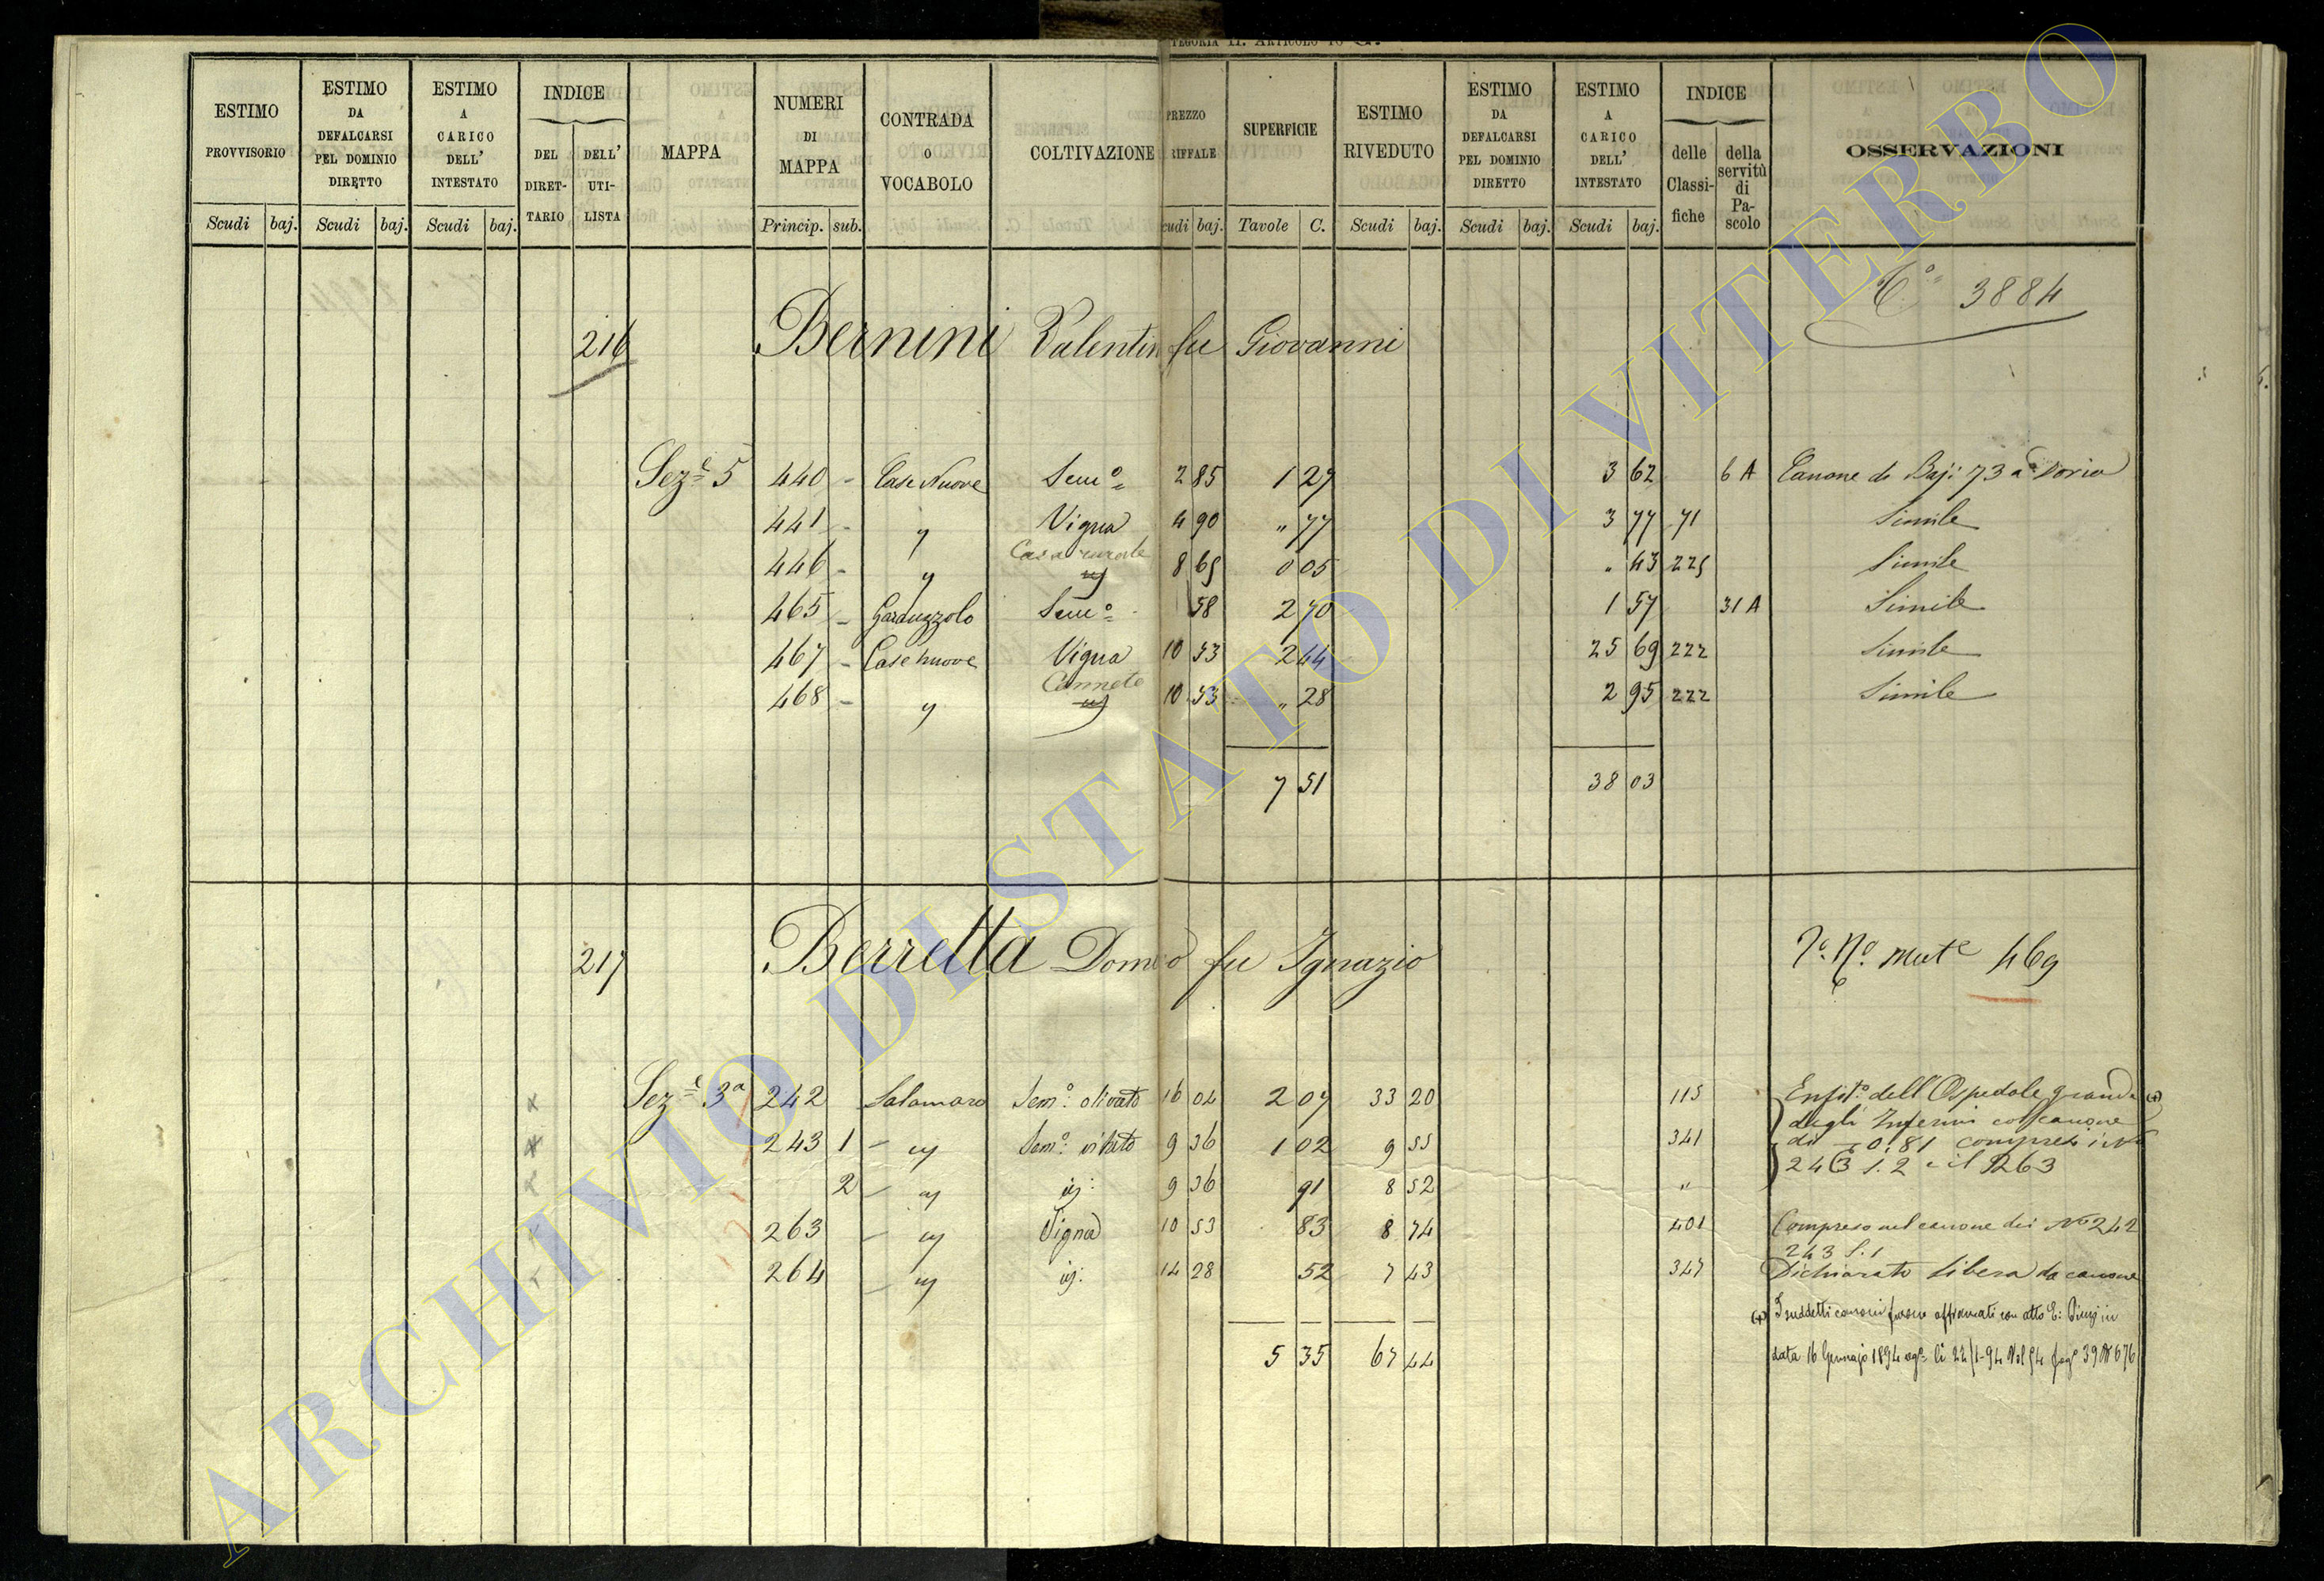 CATEGORIA II. ARTICOLO 10
ESTIMO PROVVISORIO Scudi baj.
ESTIMO DA DEFALCARSI PEL DOMINIO DIRETTO Scudi baj.
ESTIMO A CARICO DELL' INTESTATO Scudi baj.
INDICE DEL DIRETTARIO DELL' UTILISTA
MAPPA
NUMERI DI MAPPA Princip. sub.
CONTRADA O VOCABOLO
COLTIVAZIONE
PREZZO RIFFALE cudi baj.
SUPERFICIE Tavole C.
ESTIMO RIVEDUTO Scudi baj.
ESTIMO DA DEFALCARSI PEL DOMINIO DIRETTO Scudi baj.
ESTIMO A CARICO DELL' INTESTATO Scudi baj.
INDICE delle Classifiche della servitù di Pascolo
OSSERVAZIONI
3884
216 Bernini Valentin fu Giovanni
Sez.e 5 440 - Case Nuove Sem.o 2 85 1 29 3 62 6 A Canone di Baj: 73 a Doria
441 - " Vigna 4 90 " 77 3 77 71 Simile
446 - " Casa rurale 8 65 0 05 " 43 225 Simile
465 - Garduzzolo Sem.o 58 2 70 1 57 31 A Simile
467 - Case nuove Vigna 10 53 2 44 25 69 222 Simile
468 - " Canneto 10 53 " 28 2 95 222 Simile
7 51 38 03
217 Berretta Dom.o fu Ignazio
N.o mut.e 469
Sez.e 3a 242 Salamaro Sem.o olivato 16 04 2 07 33 20 115 Enfit.o dell'Ospedale grande (+)
degli Infermi col canone
243 1 - " Sem.o vitato 9 36 1 02 9 55 341 di 0.81 compresi i N.i
243 1.2 e il 263
2 - " id: 9 36 91 8 52 "
263 - " Vigna 10 53 83 8 74 401 Compreso nel canone dei N.i 242
243 S. 1
264 - " id: 14 28 52 7 43 347 Dichiarato libera da canone
(+) I suddetti canoni furono affrancati con atto in
5 35 67 44
data 16 Gennajo 1894 li 22/1-94 Vol 54 fog.o 39 N 676
ARCHIVIO DI STATO DI VITERBO